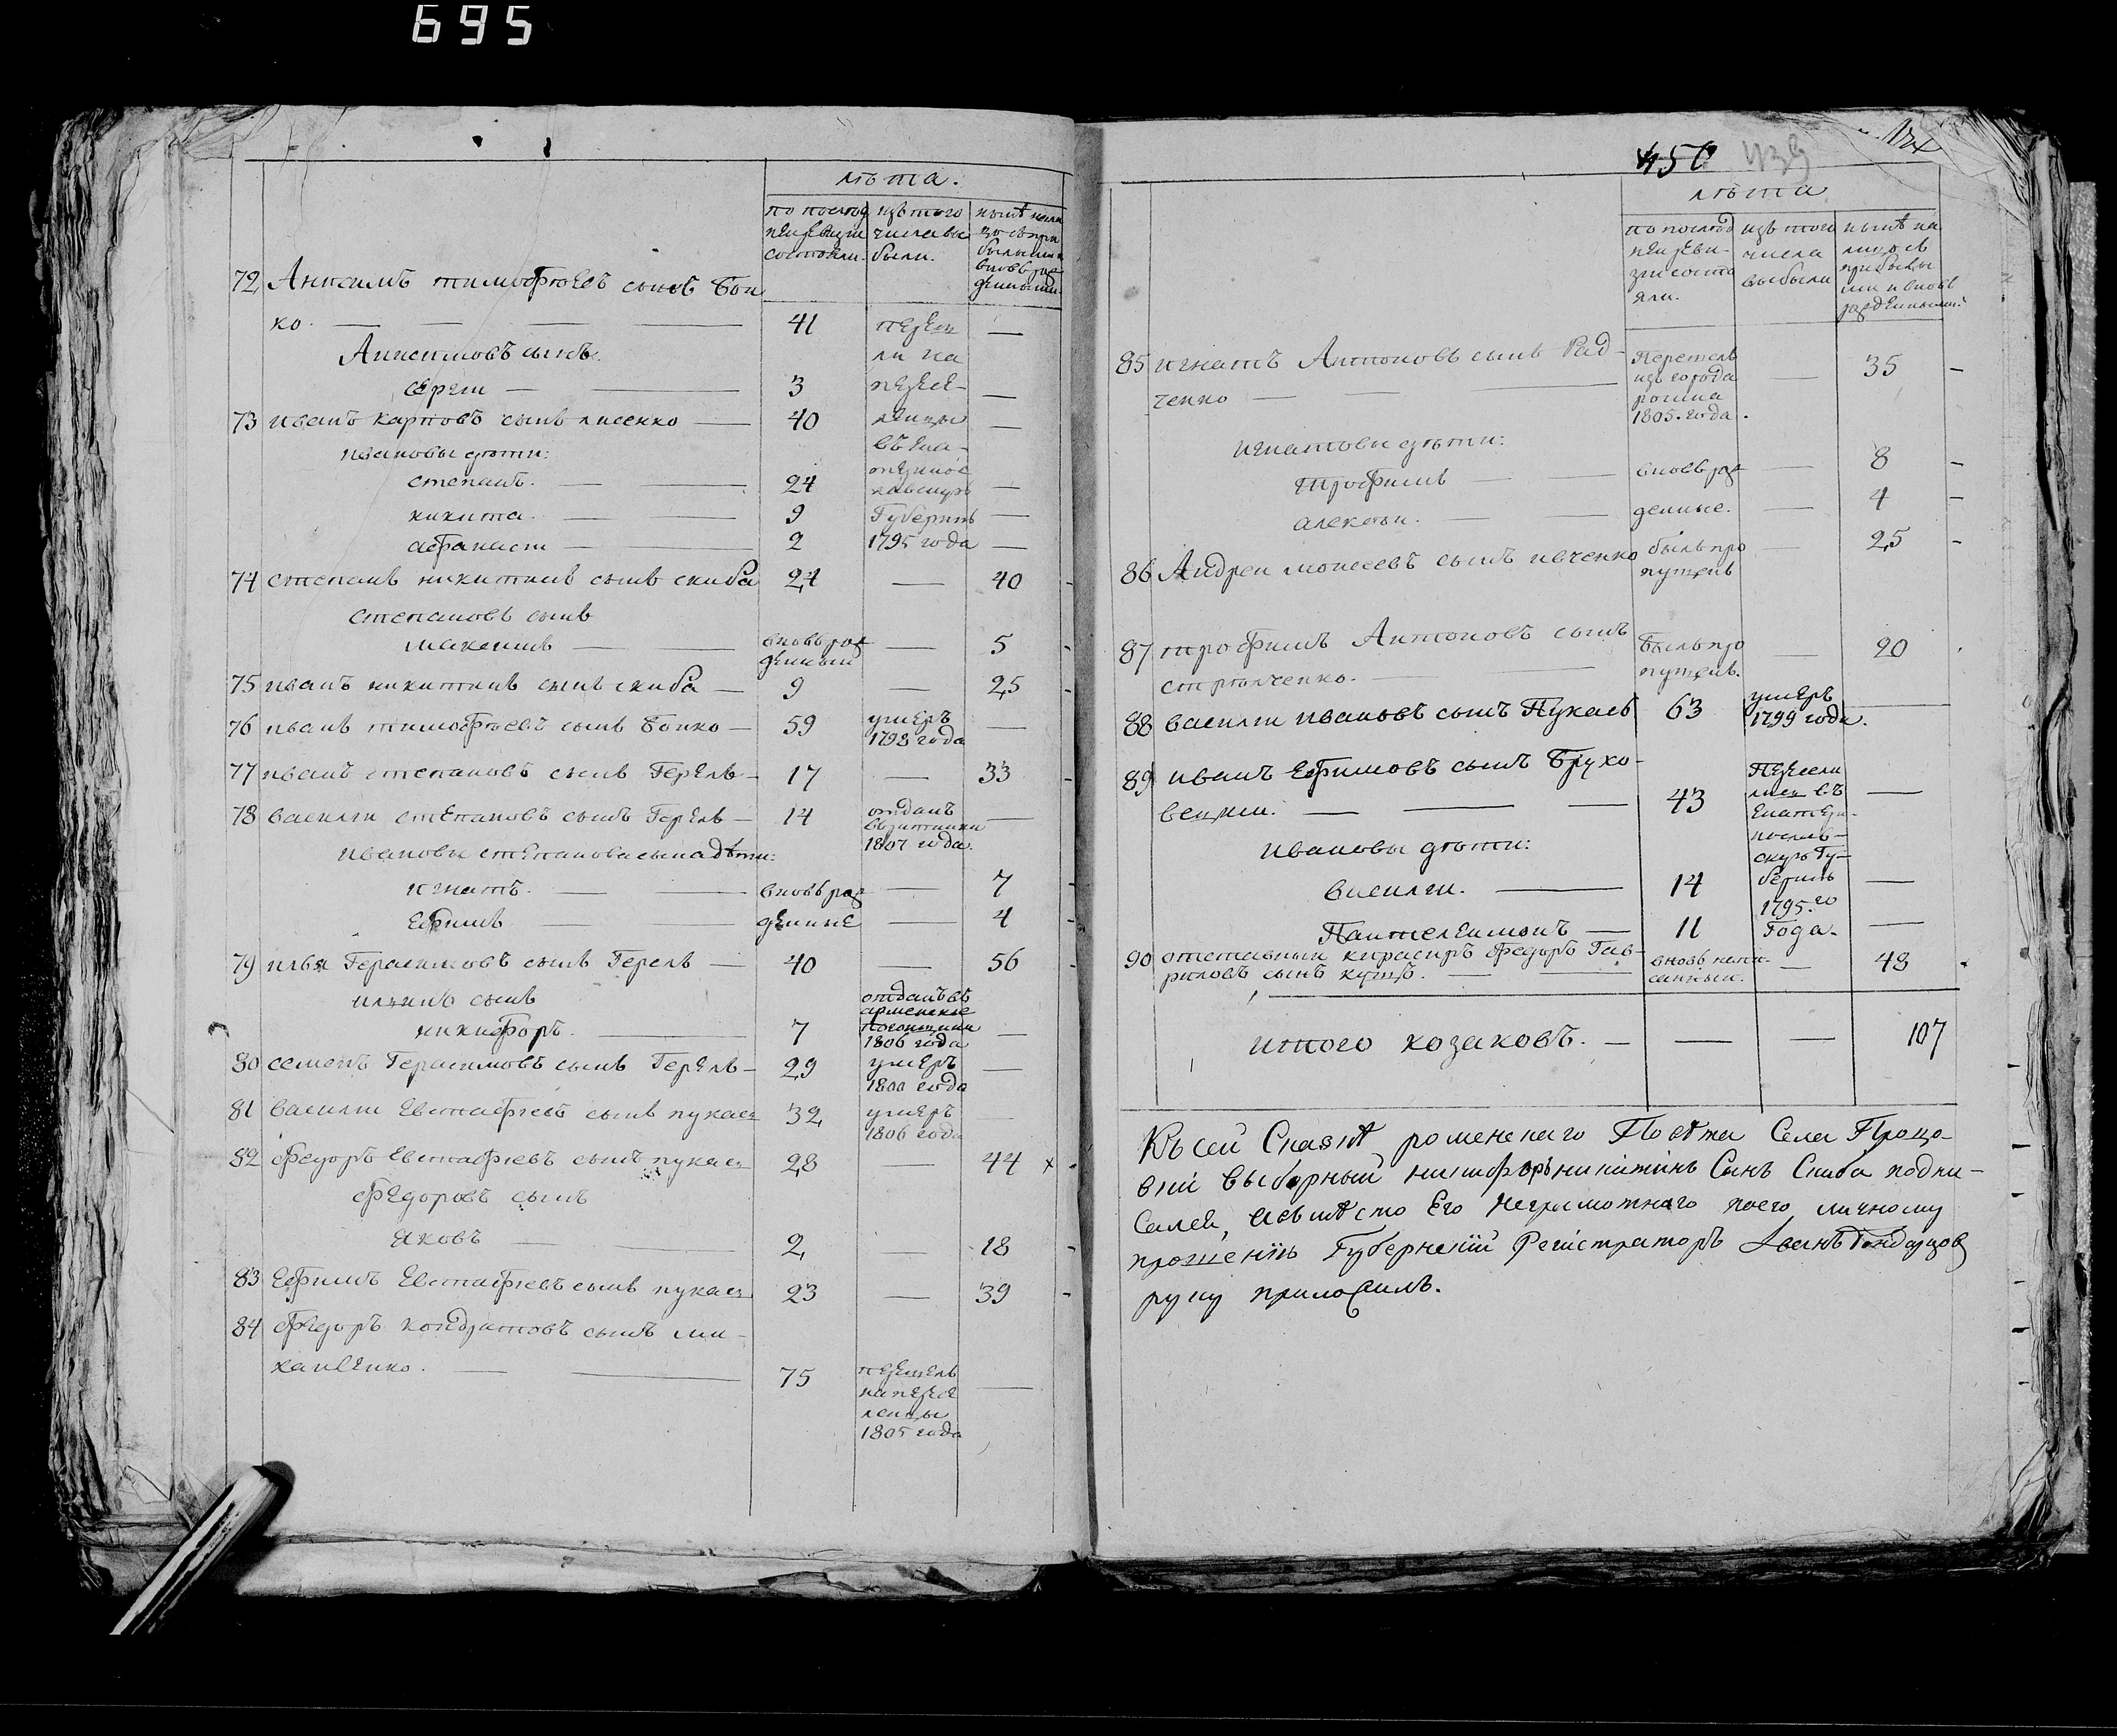 695
лѣта.
по послѣд
ней ревизіи
состояли.
изъ того
числа вы
были.
72 Анисимъ тимофѣевъ сынъ Бои
ко. 41 —
Анисимовъ сынъ.
сергѣи 3 —
пересе
ли на
пересе-
ленцы
въ ека-
теринос
лавскую
Губернію
1795 года
73 иванъ карповъ сынъ лисенко 40 —
ивановы дѣти:
степанъ. 24 —
никита. 9 —
афанасіи 2 —
74 степанъ никитинъ сынъ скиба 24 — 40
степановъ сынъ
максимъ вновь рож
денный — 5
75 иванъ никитинъ сынъ скиба 9 — 25
76 иванъ тимофѣевъ сынъ Боико 59 умеръ
1798 года —
77 иванъ степановъ сынъ Герель 17 — 33
78 василіи степановъ сынъ Герель 14 отданъ
1807 года. —
ивановы степанова сына дѣти:
игнатъ. вновь рож — 7
Ефимъ денные — 4
79 илья Герасимовъ сынъ Герель 40 — 56
ильинъ сынъ
никифоръ. 7 отданъ въ
арменскіе
погонщики
1806 года —
80 семенъ Герасимовъ сынъ Герель 29 умеръ
1800 года —
81 василіи Евстафіевъ сынъ пукась 32 умеръ
1806 года —
82 Федоръ Евстафіевъ сынъ пукась 28 — 44 x
Федоровъ сынъ
яковъ 2 18
83 Ефимъ Евстафіевъ сынъ пукась 23 — 39
84 Федоръ кондратовъ сынъ ми-
хаиленко. 75 перешелъ
на пересе
ленцы
1805 года —
450 439
лѣта
по послѣд
ней реви-
зіи состо
яли.
изъ того
числа
выбыли
нынѣ на
лицо съ
прибылы
ми и вновь
рожденными:
85 игнатъ Антоновъ сынъ Рад-
ченко Перешелъ
изъ города
ромна
1805. года. — 35
игнатовы дѣти:
Трофимъ вновь рож — 8
алексѣи. денные. — 4
86 Андреи моисеевъ сынъ ивченко былъ про
пущенъ — 25
87 трофимъ Антоновъ сынъ
стрѣлченко. Былъ про
пущенъ. — 20
88 василіи ивановъ сынъ Пукась 63 умеръ
1799 года. —
89 иванъ Ефимовъ сынъ Брухо-
вецкіи. 43 —
Пересели
лися въ
Екатери-
нослав-
скую Гу-
бернію
1795.го
Года.
ивановы дѣти:
василіи. 14 —
Пантелеимонъ 11 —
90 отставныи кирасиръ Федоръ Гав-
риловъ сынъ куцъ. вновь напи-
санныи. — 48
итого козаковъ. — — — 107
Къ сей Сказкѣ роменскаго Повѣта Села Процо-
вки выборный никифоръ никитинъ Сынъ Скиба подпи-
Сался, а вмѣсто Его неграмотнаго по его личному
прошенію Губернскій Регистраторъ Иванъ
руку приложилъ.